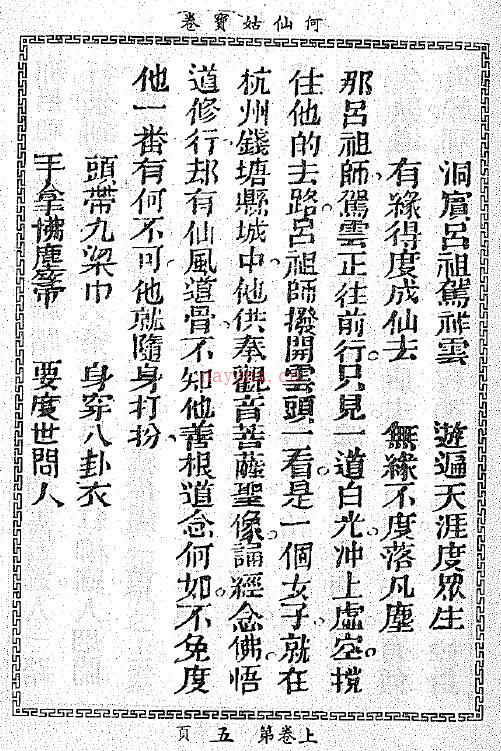 何仙姑寶卷
洞賓呂祖駕祥雲　遊遍天涯度眾生
有緣得度成仙去　無緣不度落凡塵
那呂祖師駕雲正往前行。只見一道白光冲上虛空。攩
住他的去路。呂祖師撥開雲頭一看。是一個女子。就在
杭州錢塘縣城中。他供奉觀音菩薩聖像。誦經念佛。悟
道修行。却有仙風道骨。不知他善根道念何如。不免度
他一番有何不可。他就隨身打扮。
頭帶九梁巾　身穿八卦衣
手拿拂塵箒　要度世間人
上卷第五頁